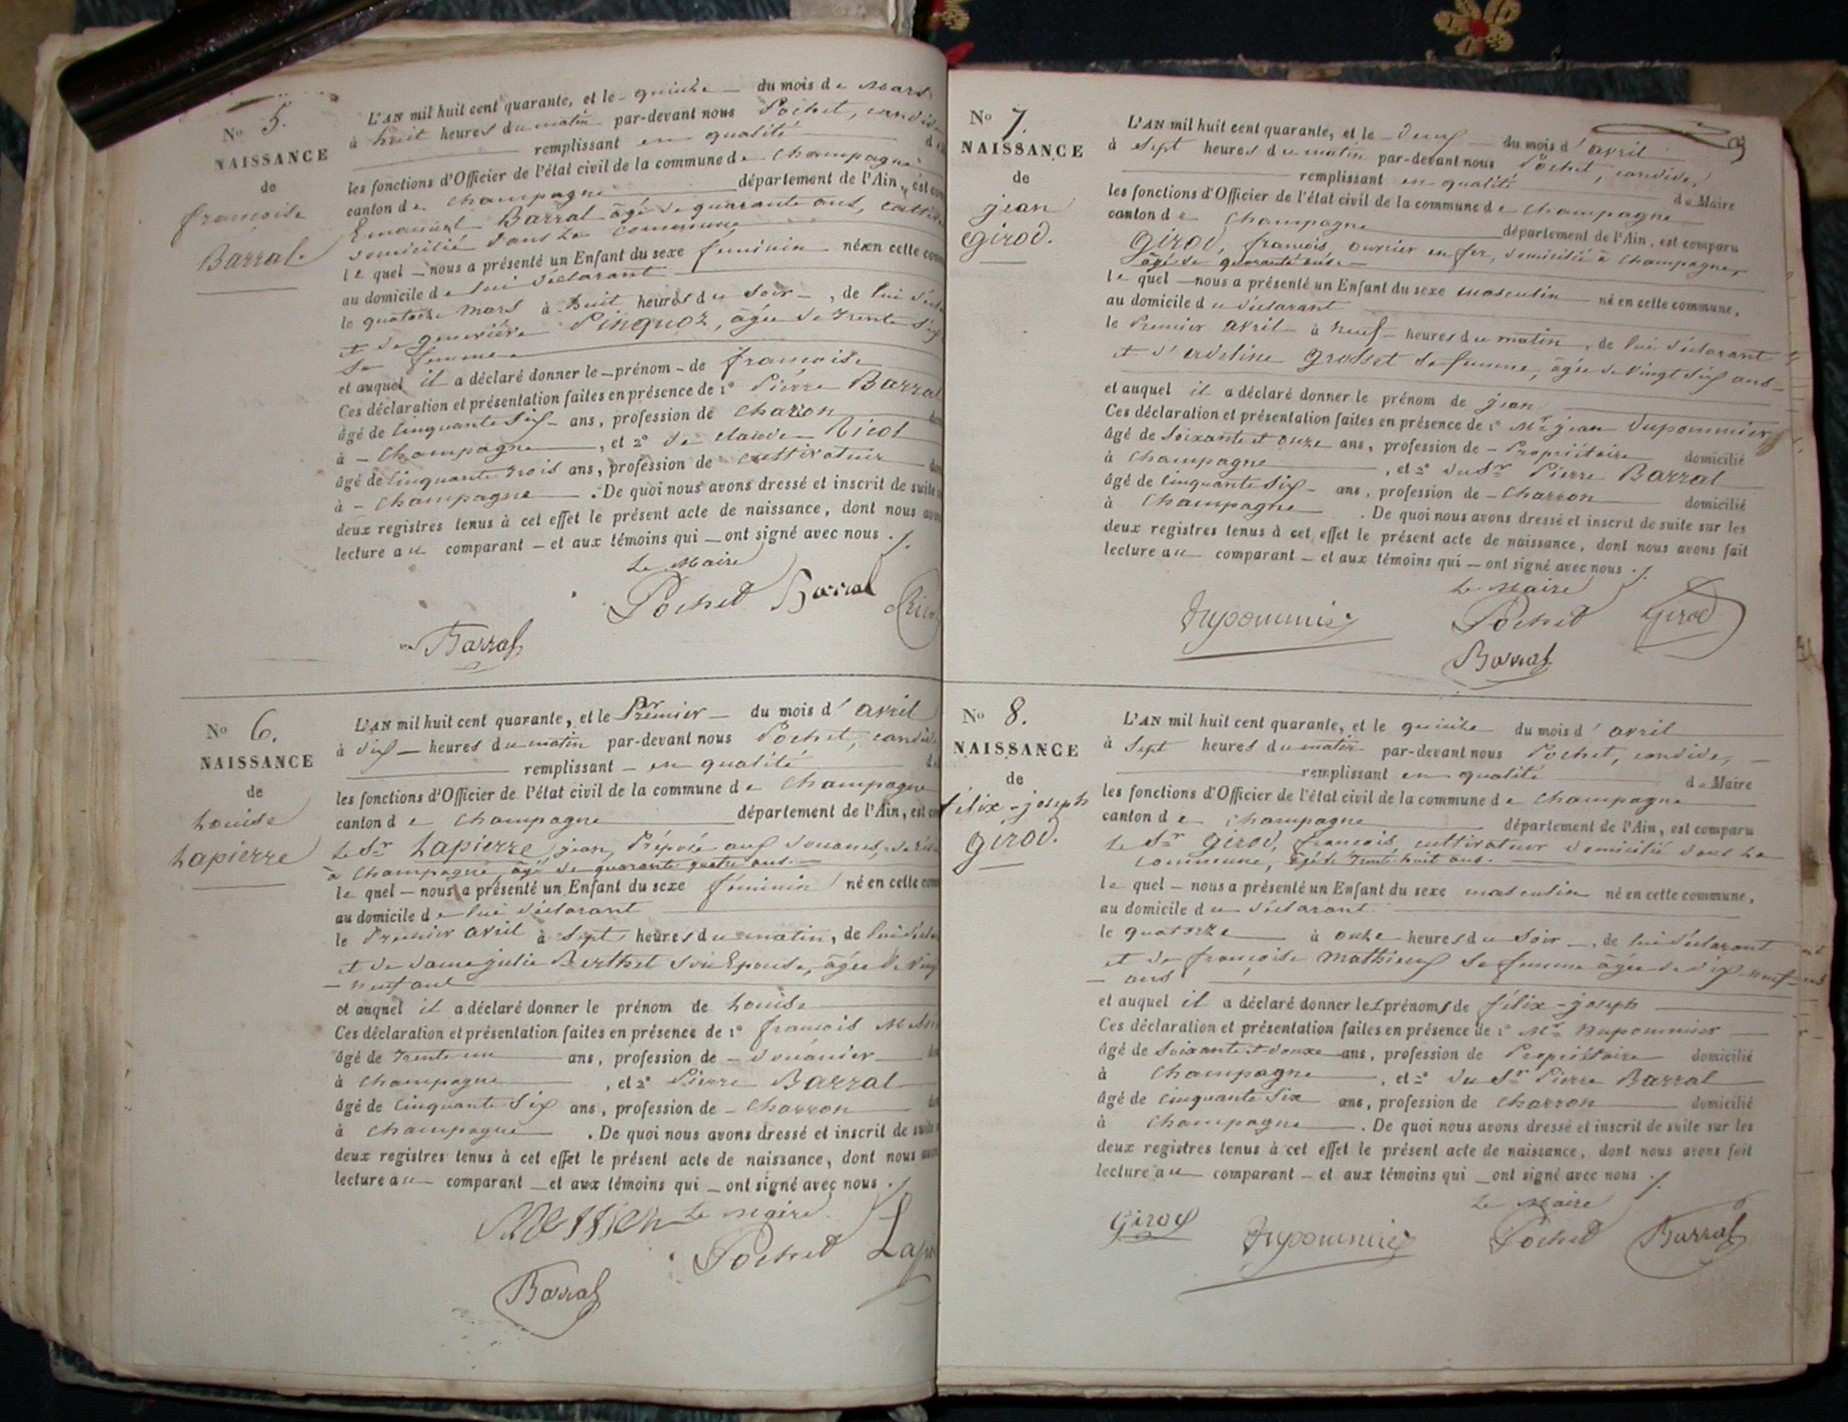 No 5.
NAISSANCE
de
françoise
Barral.
L'AN mil huit cent quarante, et le quinze du mois de Mars
à huit heures du matin par-devant nous Pochet, candide
remplissant en qualité
les fonctions d'Officier de l'état civil de la commune de Champagne
canton de Champagne département de l'Ain, est
Emanuel Barral âgé de quarante ans,
domicilié dans la commune
le quel nous a présenté un Enfant du sexe feminin né en cette
au domicile de lui déclarant
le quatorze Mars à huit heures du Soir, de lui
et de genevieve Pinquoz, âgée de trente Six
Sa femme
et auquel il a déclaré donner le prénom de françoise
Ces déclaration et présentation faites en présence de 1o Pierre Barral
âgé de Cinquante Six ans, profession de Charon
à Champagne, et 2o de claude Ricol
âgé de Cinquante trois ans, profession de cultivateur
à Champagne. De quoi nous avons dressé et inscrit de suite
deux registres tenus à cet effet le présent acte de naissance, dont nous
lecture au comparant et aux témoins qui ont signé avec nous ./.
Le Maire
Pochet Barral
Barral
No 6.
NAISSANCE
de
Louise
Lapierre
L'AN mil huit cent quarante, et le Premier du mois d'avril
à dix heures du matin par-devant nous Pochet, candide
remplissant en qualité
les fonctions d'Officier de l'état civil de la commune de Champagne
canton de Champagne département de l'Ain, est
Le Sr Lapierre, jean, Préposé aux Douanes,
à Champagne, âgé de quarante quatre ans.
le quel nous a présenté un Enfant du sexe féminin né en cette
au domicile de lui déclarant
le Premier avril à Sept heures du matin, de lui
et de dame julie Berthet Son Epouse, âgée de Vingt
neuf ans
et auquel il a déclaré donner le prénom de Louise
Ces déclaration et présentation faites en présence de 1o françois
âgé de trente un ans, profession de douanier
à Champagne, et 2o Pierre Barral
âgé de Cinquante Six ans, profession de Charron
à Champagne. De quoi nous avons dressé et inscrit de suite
deux registres tenus à cet effet le présent acte de naissance, dont nous
lecture au comparant et aux témoins qui ont signé avec nous ./.
Le Maire
Pochet
Barral
No 7.
NAISSANCE
de
jean
Girod.
L'AN mil huit cent quarante, et le deux du mois d'avril
à Sept heures du matin par-devant nous Pochet, candide,
remplissant en qualité de Maire
les fonctions d'Officier de l'état civil de la commune de Champagne
canton de Champagne département de l'Ain, est comparu
Girod, françois, ouvrier en fer, domicilié à Champagne,
âgé de quarante
le quel nous a présenté un Enfant du sexe masculin né en cette commune,
au domicile du déclarant
le Premier avril à neuf heures du matin, de lui déclarant
et d'adeline Grosset Sa femme, âgée de Vingt Six ans
et auquel il a déclaré donner le prénom de jean
Ces déclaration et présentation faites en présence de 1o Mr jean Dupommier
âgé de Soixante et onze ans, profession de Propriétaire domicilié
à Champagne, et 2o du Sr Pierre Barral
âgé de Cinquante Six ans, profession de Charron domicilié
à Champagne. De quoi nous avons dressé et inscrit de suite sur les
deux registres tenus à cet effet le présent acte de naissance, dont nous avons fait
lecture au comparant et aux témoins qui ont signé avec nous ./.
Le Maire
Dupommier Pochet Girod
Barral
No 8.
NAISSANCE
de
félix-joseph
Girod.
L'AN mil huit cent quarante, et le quinze du mois d'avril
à Sept heures du matin par-devant nous Pochet, candide,
remplissant en qualité de Maire
les fonctions d'Officier de l'état civil de la commune de Champagne
canton de Champagne département de l'Ain, est comparu
Le Sr Girod, françois, cultivateur domicilié dans La
commune, âgé de trente huit ans.
le quel nous a présenté un Enfant du sexe masculin né en cette commune,
au domicile du déclarant
le quatorze à onze heures du Soir, de lui déclarant
et de françoise Mathieux Sa femme âgée de dix neuf
ans
et auquel il a déclaré donner les prénoms de félix-joseph
Ces déclaration et présentation faites en présence de 1o Mr Dupommier
âgé de Soixante et douze ans, profession de Propriétaire domicilié
à Champagne, et 2o du Sr Pierre Barral
âgé de Cinquante Six ans, profession de Charron domicilié
à Champagne. De quoi nous avons dressé et inscrit de suite sur les
deux registres tenus à cet effet le présent acte de naissance, dont nous avons fait
lecture au comparant et aux témoins qui ont signé avec nous ./.
Le Maire
Girod Dupommier Pochet Barral